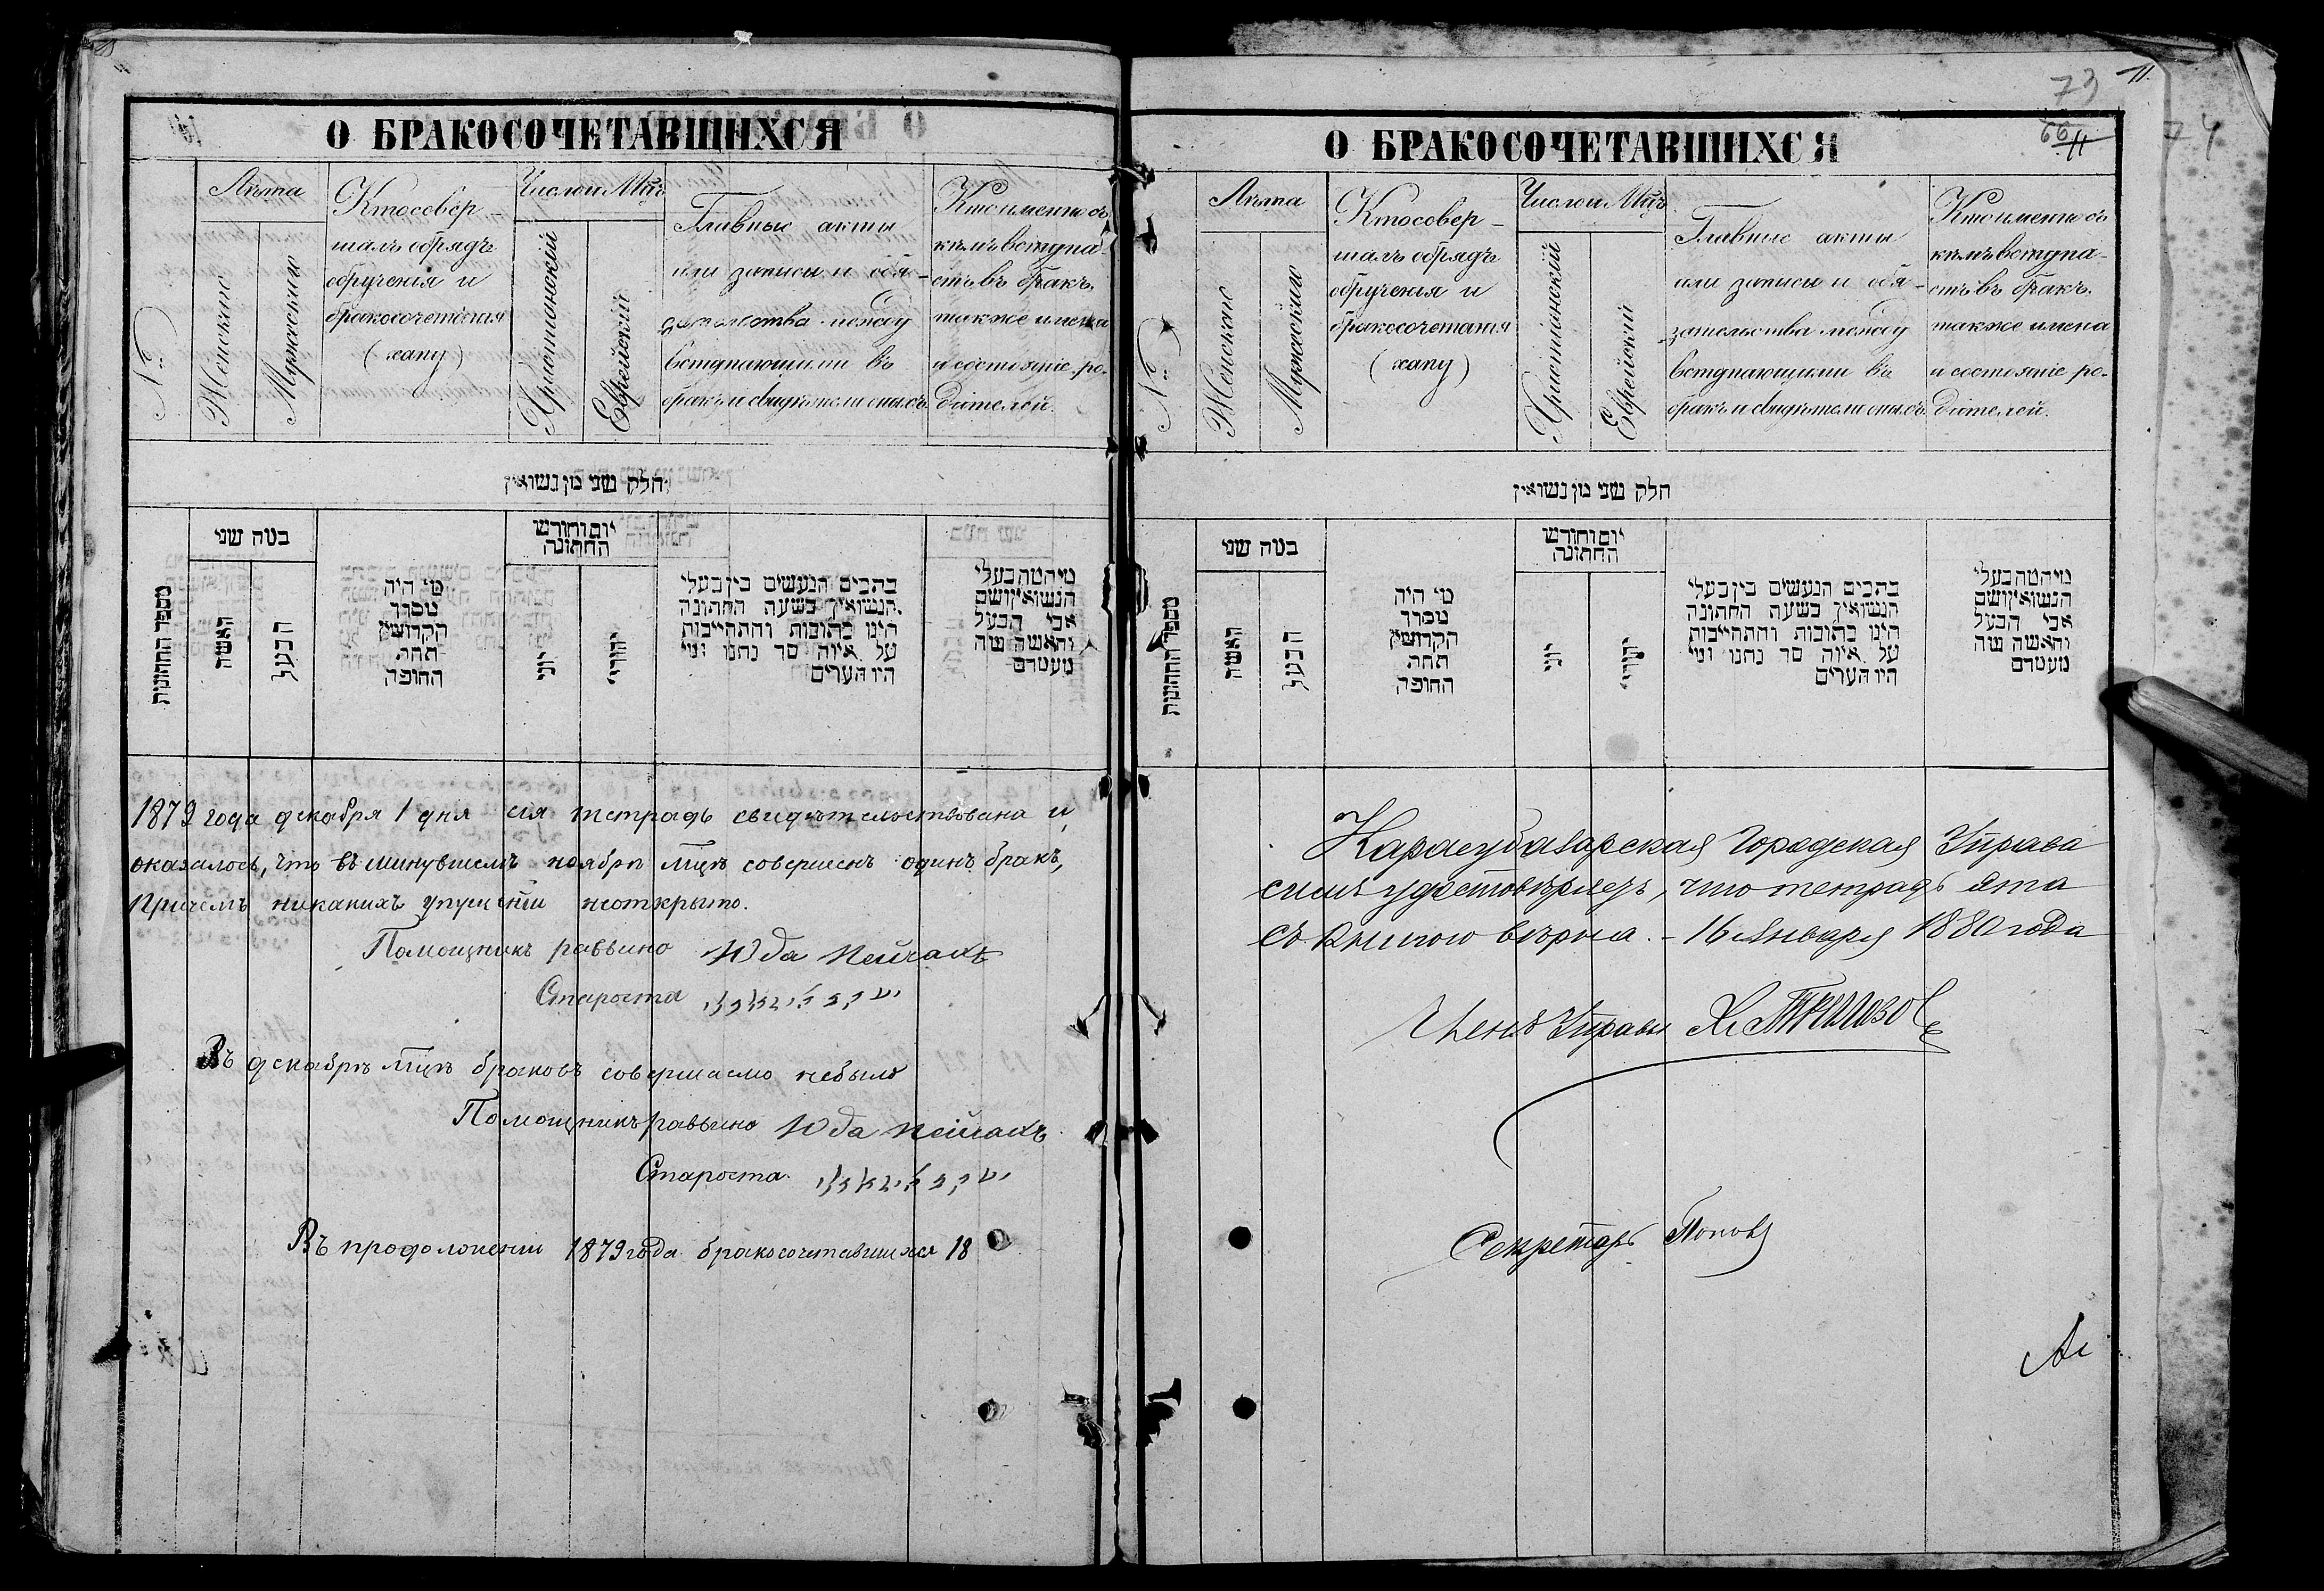 О БРАКОСОЧЕТАВШИХСЯ
№
Лѣта
Женскаго
Мужескаго
Кто совер-
шалъ обрядъ
обрученія и
бракосочетанія
(хапу)
Число и Мцъ
Христіанскій
Еврейскій
Главные акты
или записи и обя-
зательства между
вступающими въ
бракъ и свидѣтели оныхъ.
Кто именно съ
кѣмъ вступа-
етъ въ бракъ.
также имена
и состояніе ро-
дителей.
חלק שני מן נשואין
מספר החתונות
במה שני
האשה
הבעל
מי היה
מסדר
הקדושין
תחת
החופה
יום וחודש
החתונה
יוני
יהודי
כתבים הנעשים בין בעלי
הנשואין בשעה החתונה
היינו כתובות והתחייבות
על איזה סך נתנו ומי
היו הערים
מי המה בעלי
הנשואין ושם
אבי הבעל
והאשה ומה
מעמדם
1879 года декабря 1 дня сія тетрадь свидѣтельствована и
оказалось, что въ минувшемъ ноябрѣ мцѣ совершенъ одинъ бракъ,
причемъ никакихъ упущеній неоткрыто.
Помощникъ раввина Юда Пейсахъ
Староста
Въ декабрѣ мцѣ браковъ совершаемо небыло
Помощникъ раввина Юда Пейсахъ
Староста
Въ продолженіи 1879 года бракосочитавшихся 18
73
11
66
11
74
О БРАКОСОЧЕТАВШИХСЯ
№
Лѣта
Женскаго
Мужескаго
Кто совер-
шалъ обрядъ
обрученія и
бракосочетанія
(хапу)
Число и Мцъ
Христіанскій
Еврейскій
Главные акты
или записи и обя-
зательства между
вступающими въ
бракъ и свидѣтели оныхъ.
Кто именно съ
кѣмъ вступа-
етъ въ бракъ.
также имена
и состояніе ро-
дителей.
חלק שני מן נשואין
מספר החתונות
במה שני
האשה
הבעל
מי היה
מסדר
הקדושין
תחת
החופה
יום וחודש
החתונה
יוני
יהודי
כתבים הנעשים בין בעלי
הנשואין בשעה החתונה
היינו כתובות והתחייבות
על איזה סך נתנו ומי
היו הערים
מי המה בעלי
הנשואין ושם
אבי הבעל
והאשה ומה
מעמדם
Карасубазарская Городская Управа
симъ удостовѣряетъ, что тетрадь эта
съ книгою вѣрна. - 16 Января 1880 года
Членъ Управы
Секретарь Поповъ